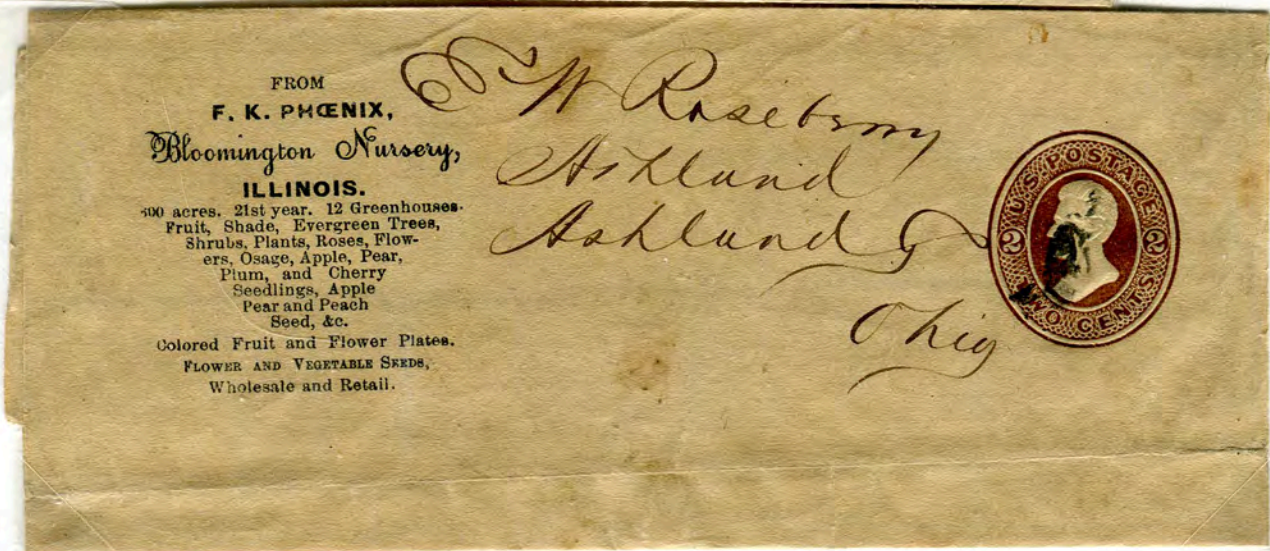 FROM
F. K. PHŒNIX,
Bloomington Nursery,
ILLINOIS.
600 acres. 21st year. 12 Greenhouses.
Fruit, Shade, Evergreen Trees,
Shrubs, Plants, Roses, Flow-
ers, Osage, Apple, Pear,
Plum, and Cherry
Seedlings, Apple
Pear and Peach
Seed, &c.
Colored Fruit and Flower Plates.
FLOWER AND VEGETABLE SEEDS,
Wholesale and Retail.
W Roseberry
Ashland
Ashland
Ohio
U.S. POSTAGE
2 2
TWO CENTS